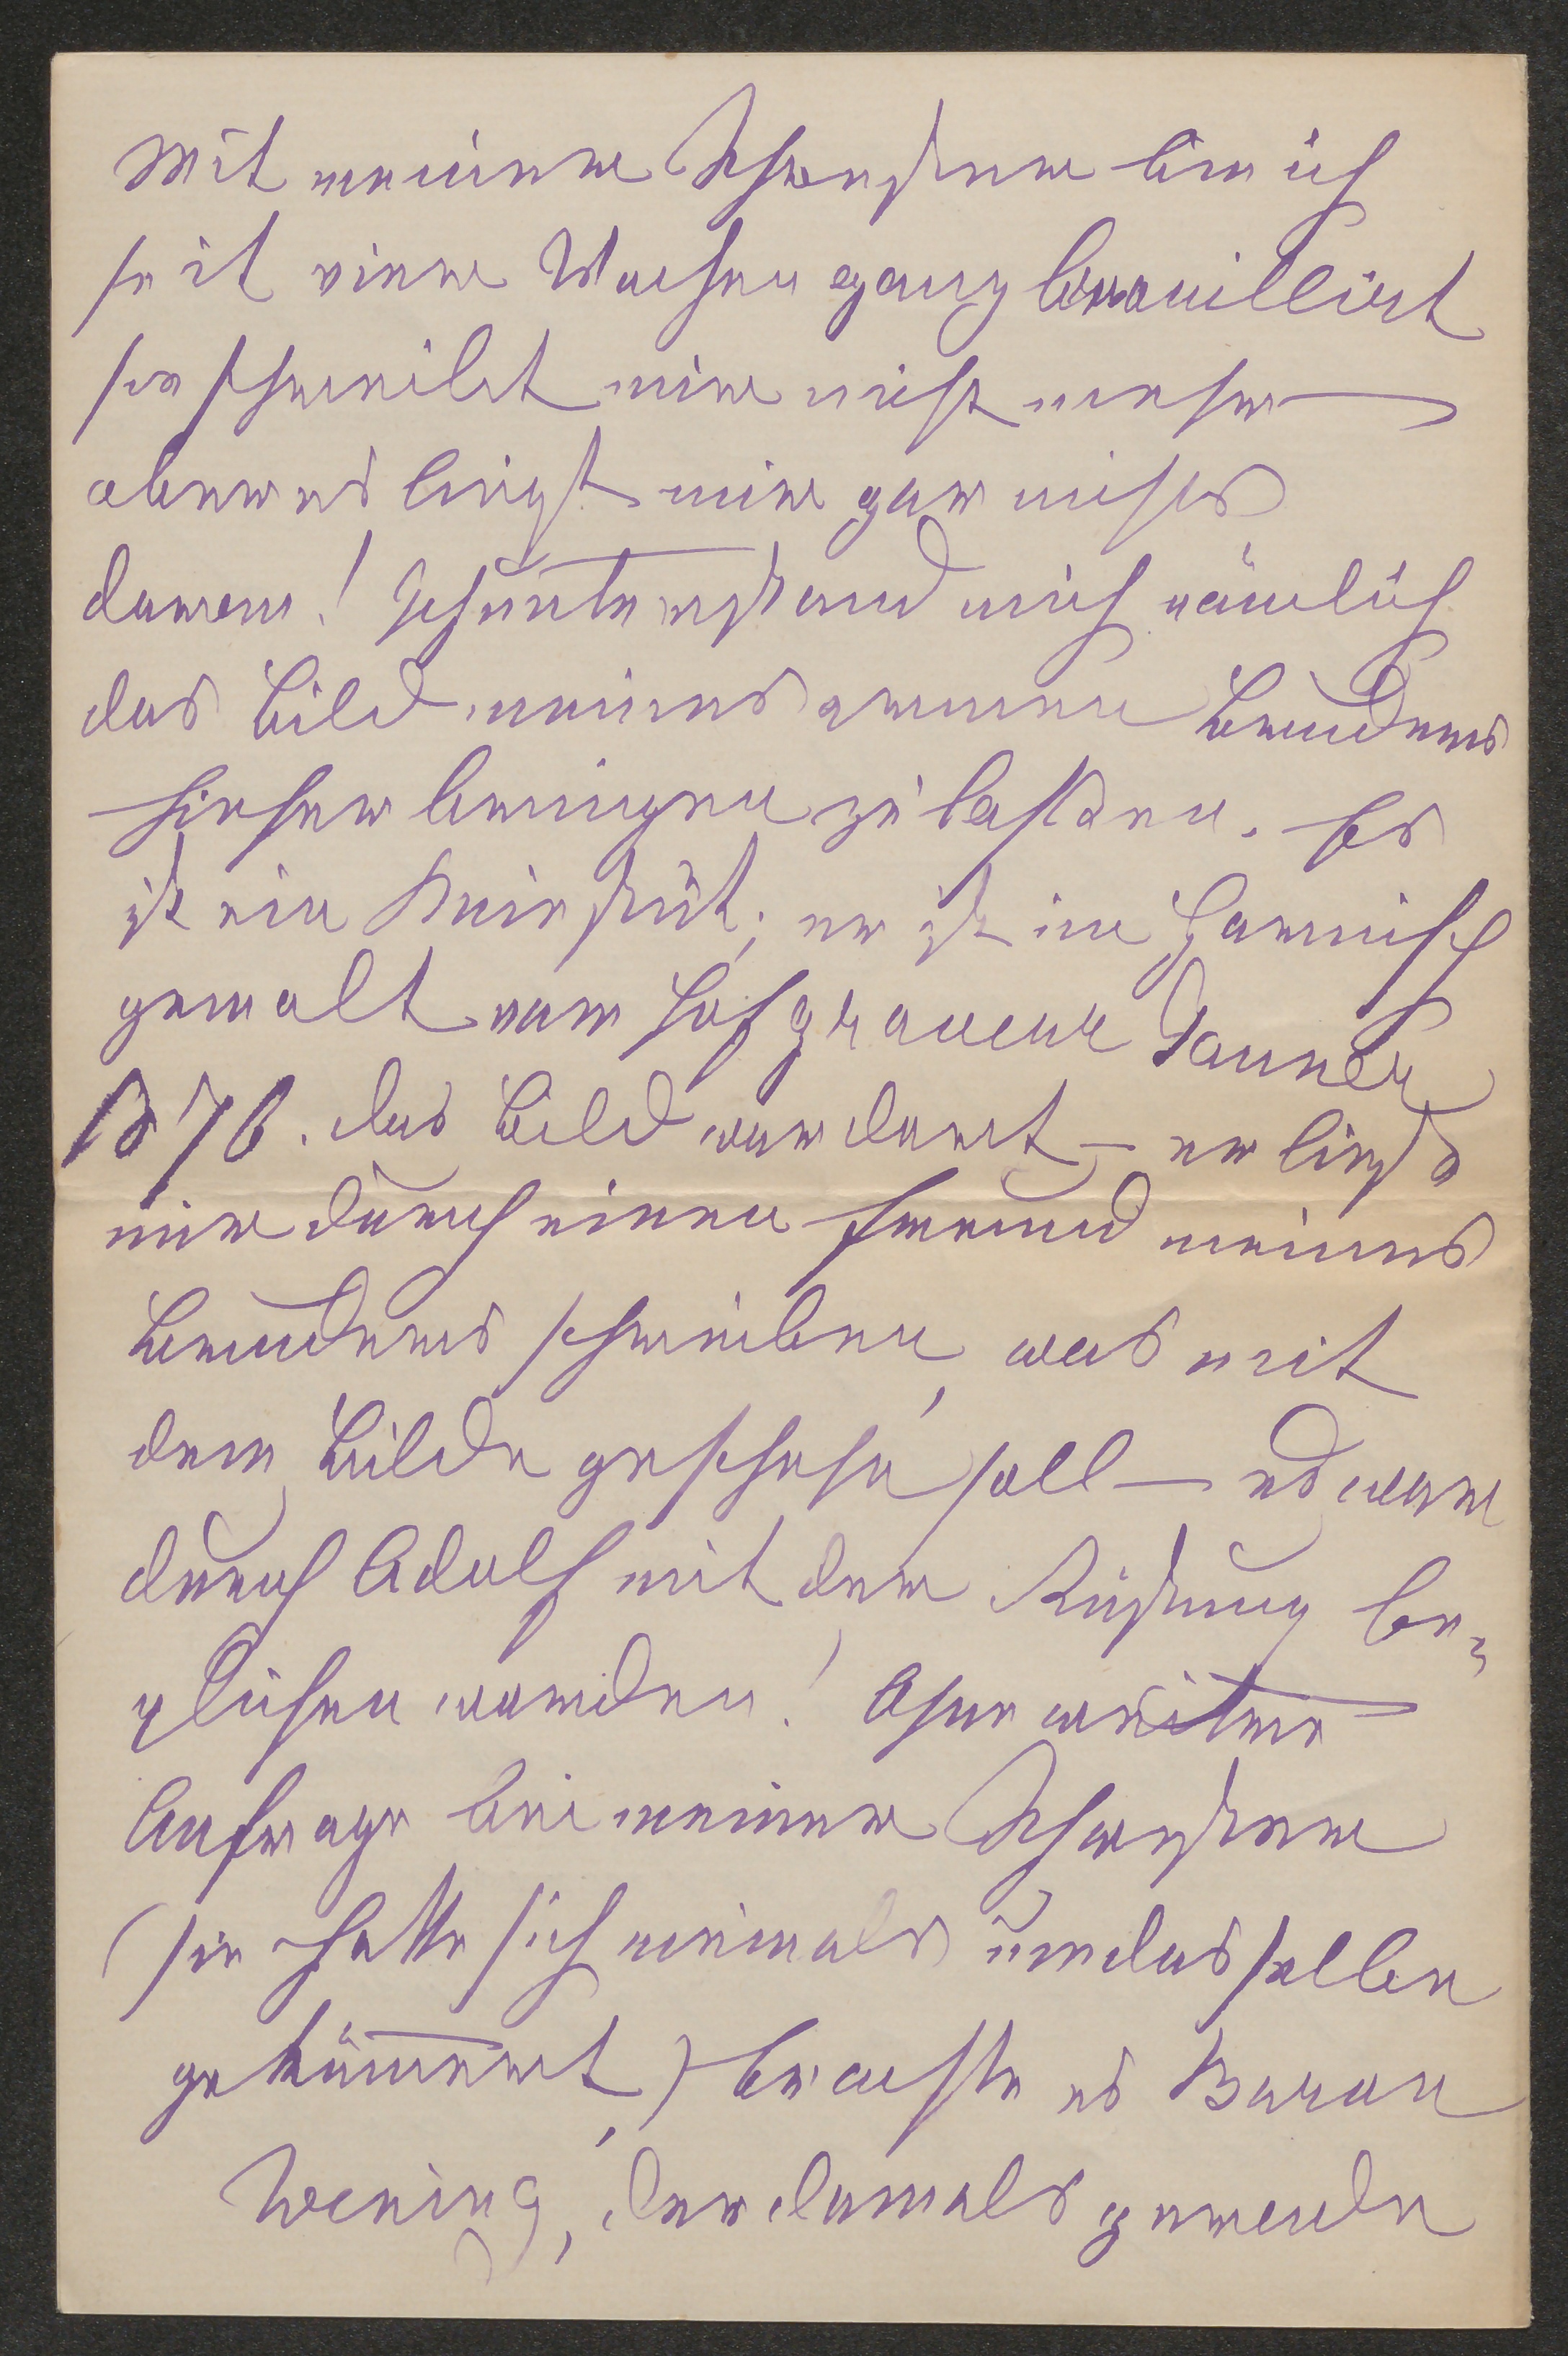 Mit meiner Schwester bin ich
seit vier Wochen ganz brouillirt
sie schreibt mir nicht mehr
aber es liegt mir gar nichts
daran! Ich unterstand mich nämlich
das Bild meines armen Bruders
hieher bringen zu lassen. Es
ist ein Kniestük; er ist im Harnisch
gemalt vom Hofgraveur Tauner
1876. das Bild war dort – er ließ
mir durch einen Freund meines
Bruders schreiben, was mit
dem Bilde geschehe soll – es wäre
durch Adolf mit der Rüstung be-
glichen worden! Ohne weitere
Anfrage bei meiner Schwester
(sie hatte sich niemals um dasselbe
gekümmert,) brachte es Baron
Wening, der damals gerade